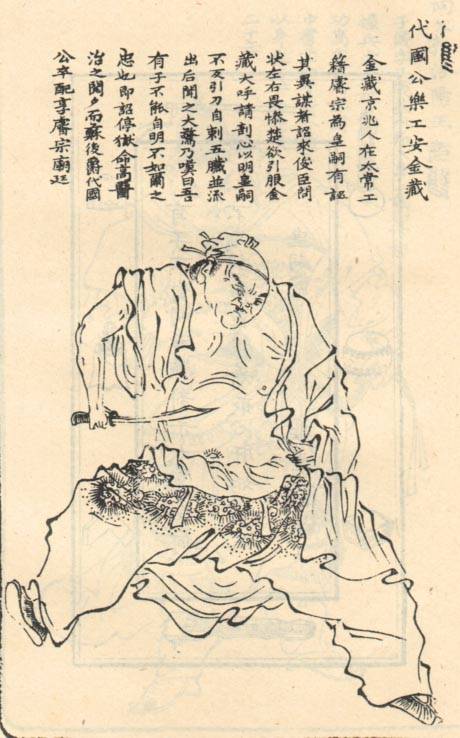 代國公樂工安金藏
金藏京兆人在太常工
籍睿宗為皇嗣有誣
其異謀者詔來俊臣問
狀左右畏慘楚欲引服金
藏大呼請剖心以明皇嗣
不反引刀自刺五臟並流
出后聞之大驚乃嘆曰吾
有子不能自明不如爾之
忠也即詔停獄命高醫
治之閱夕而蘇後爵代國
公卒配享睿宗廟廷